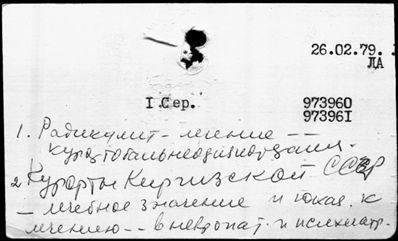 26.02.79.
ЛА
I Сер.
973960
973961
1. Радикулит - лечение --
курортобальнеофизиотерапия.
2 Курорты Киргизской ССР
- лечебное значение и показ. к
лечению -- в невропат. и психиатр.